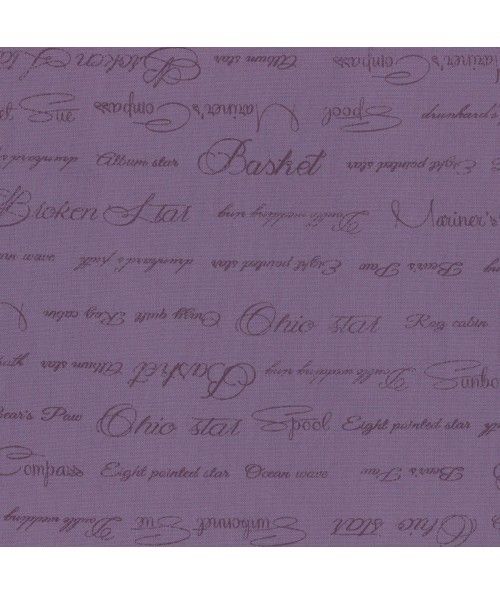 Broken Star Album star Compass
Sue Mariner's Compass Spool
Album star Basket Eight pointed star
Broken Star Double wedding ring Mariner's
wave drunkard's path Eight pointed star Bear's Paw
Crazy quilt Log cabin Ohio star Log cabin
Album star Basket Double wedding ring Sunbo
Bear's Paw Ohio star Spool Eight pointed star
Compass Eight pointed star Ocean wave Bear's Paw
Double wedding Sunbonnet Sue Ohio star